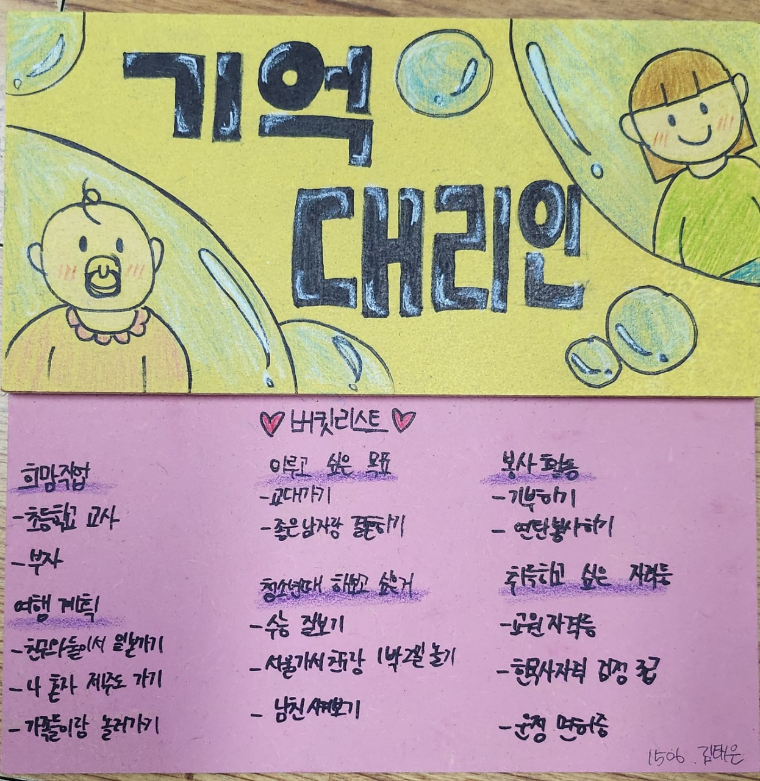 기억
대리인
♥버킷리스트♥
희망직업
-초등학교 교사
-부자
여행 계획
-친구와 둘이서 일본가기
-나 혼자 제주도 가기
-가족들이랑 놀러가기
이루고 싶은 목표
-교대가기
-좋은 남자랑 결혼하기
청소년때 해보고 싶은거
-수능 잘보기
-서울가서 친구랑 1박2일 놀기
- 남친 사귀보기
봉사 활동
-기부하기
- 연탄봉사하기
취득하고 싶은 자격증
-교원자격증
-한국사자격 검정 3급
-운전 면허증
1506. 김태은